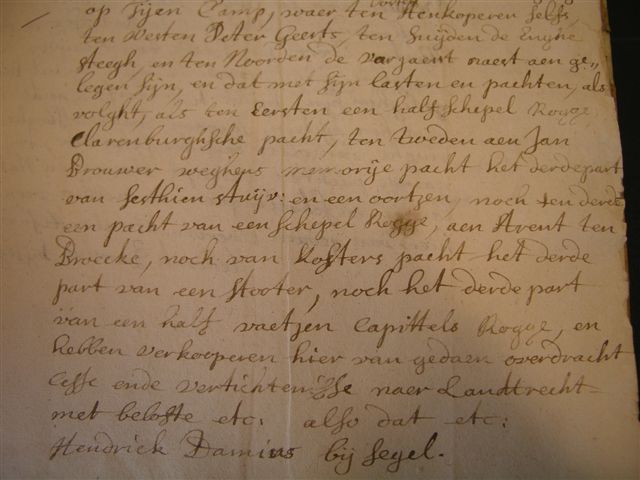 op Sijen Camp, waer ten Henkoperen selfs,
ten Westen Peter Geerts, ten Suijden de Enghe
steegh, en ten Noorden de vargaert naest aen ge„
legen sijn, en dat met sijn lasten en pachten, als
volght, als ten Eersten een half schepel Rogge
Clarenburghsche pacht, ten tweden aen Jan
Brouwer weghens memorije pacht het derdepart
van Sesthien stuijv: en een oortjen, noch ten derde
een pacht van een schepel Rogge, aen Arent ten
Broecke, noch van Kosters pacht het derde
part van een stooter, noch het derde part
van een half vaetjen Capittels Rogge, en
hebben verkooperen hier van gedaen overdracht
Cesse ende vertichtenisse naer Landtrecht
met belofte etc: also dat etc:
Hendrick Damius bij segel.